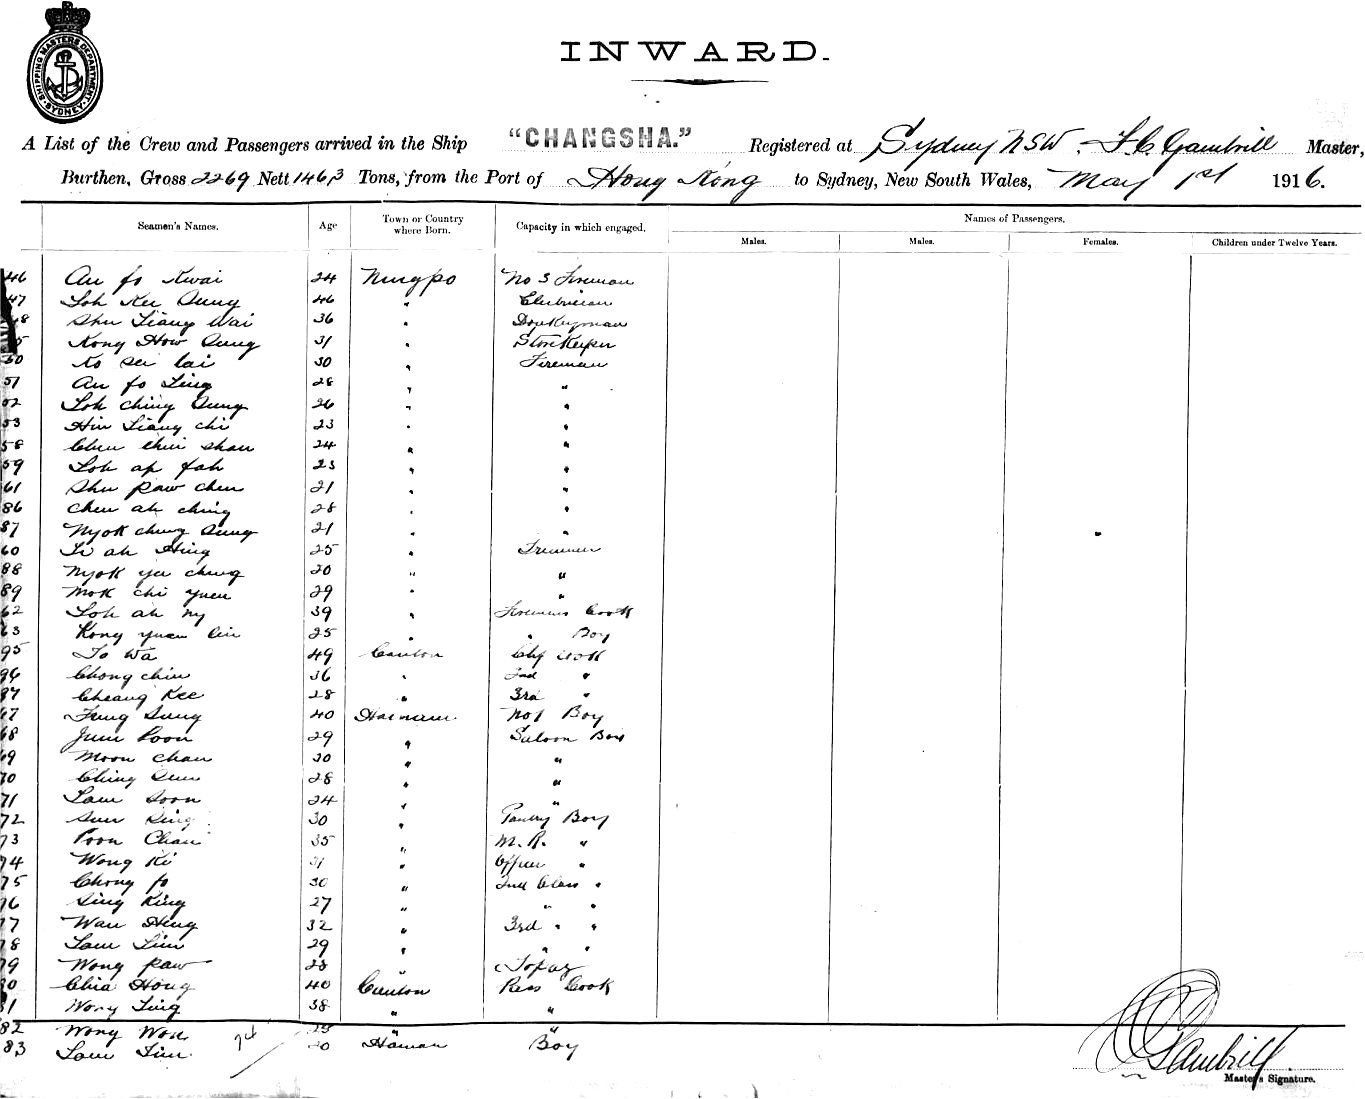 SHIPPING MASTERS DEPARTMENT SYDNEY
INWARD.
A List of the Crew and Passengers arrived in the Ship "CHANGSHA." Registered at Sydney NSW. Gambrill Master,
Burthen, Gross 2269 Nett 1463 Tons, from the Port of Hong Kong to Sydney, New South Wales, May 1st 1916.
Seamen's Names. Age Town or Country where Born. Capacity in which engaged. Names of Passengers.
Males. Males. Females. Children under Twelve Years.
46 Au fo Kwai 24 Ningpo No 3 Fireman
47 Loh Kee Sung 46 " Electrician
48 Shu Liang Wai 36 " Donkeyman
Kong How Sung 31 " Storekeeper
50 Ko Sei lai 30 " Fireman
51 Au fo Ling 28 " "
52 Loh Ching Sung 26 " "
53 Hin Liang chi 23 " "
58 Chen chui shan 24 " "
59 Loh ap fah 23 " "
61 Shu paw chen 21 " "
86 Chen ah ching 28 " "
87 Nyok ching Sung 21 " "
60 Li ah Hing 25 " Trimmer
88 Nyok yu chung 20 " "
89 Mok chi yuen 29 " "
62 Loh ah ny 39 " Firemens Cook
63 Kong yuen lin 25 " " Boy
95 To Wa 49 Canton Chf Cook
96 Chong chin 36 " 2nd "
97 Cheang Kee 28 " 3rd "
67 Fung Sung 40 Hainam No 1 Boy
68 Jum Poon 29 " Saloon Boy
69 Moon Chan 30 " "
70 Ching Sun 28 " "
71 Lam Soon 24 " "
72 Sun King 30 " Pantry Boy
73 Poon Chan 35 " M. R. "
74 Wong Ki 31 " Officer "
75 Chong fo 30 " 2nd Class "
76 Sing King 27 " " "
77 Wan Hing 32 " 3rd " "
78 Lam Lim 29 " " "
79 Wong Paw 23 " Topaz
80 Chia Hong 40 Canton Pass Cook
81 Wong Ting 38 " "
82 Wong Won 29 " "
83 Lam Lim 20 Hainan Boy
74
Gambrill
Master's Signature.